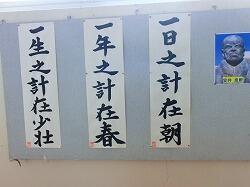 一日之計在朝
一年之計在春
一生之計在少壮